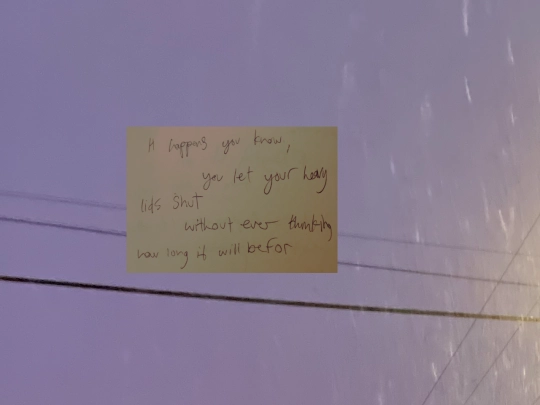 it happens you know,
you let your heavy
lids shut
without ever thinking
how long it will be for